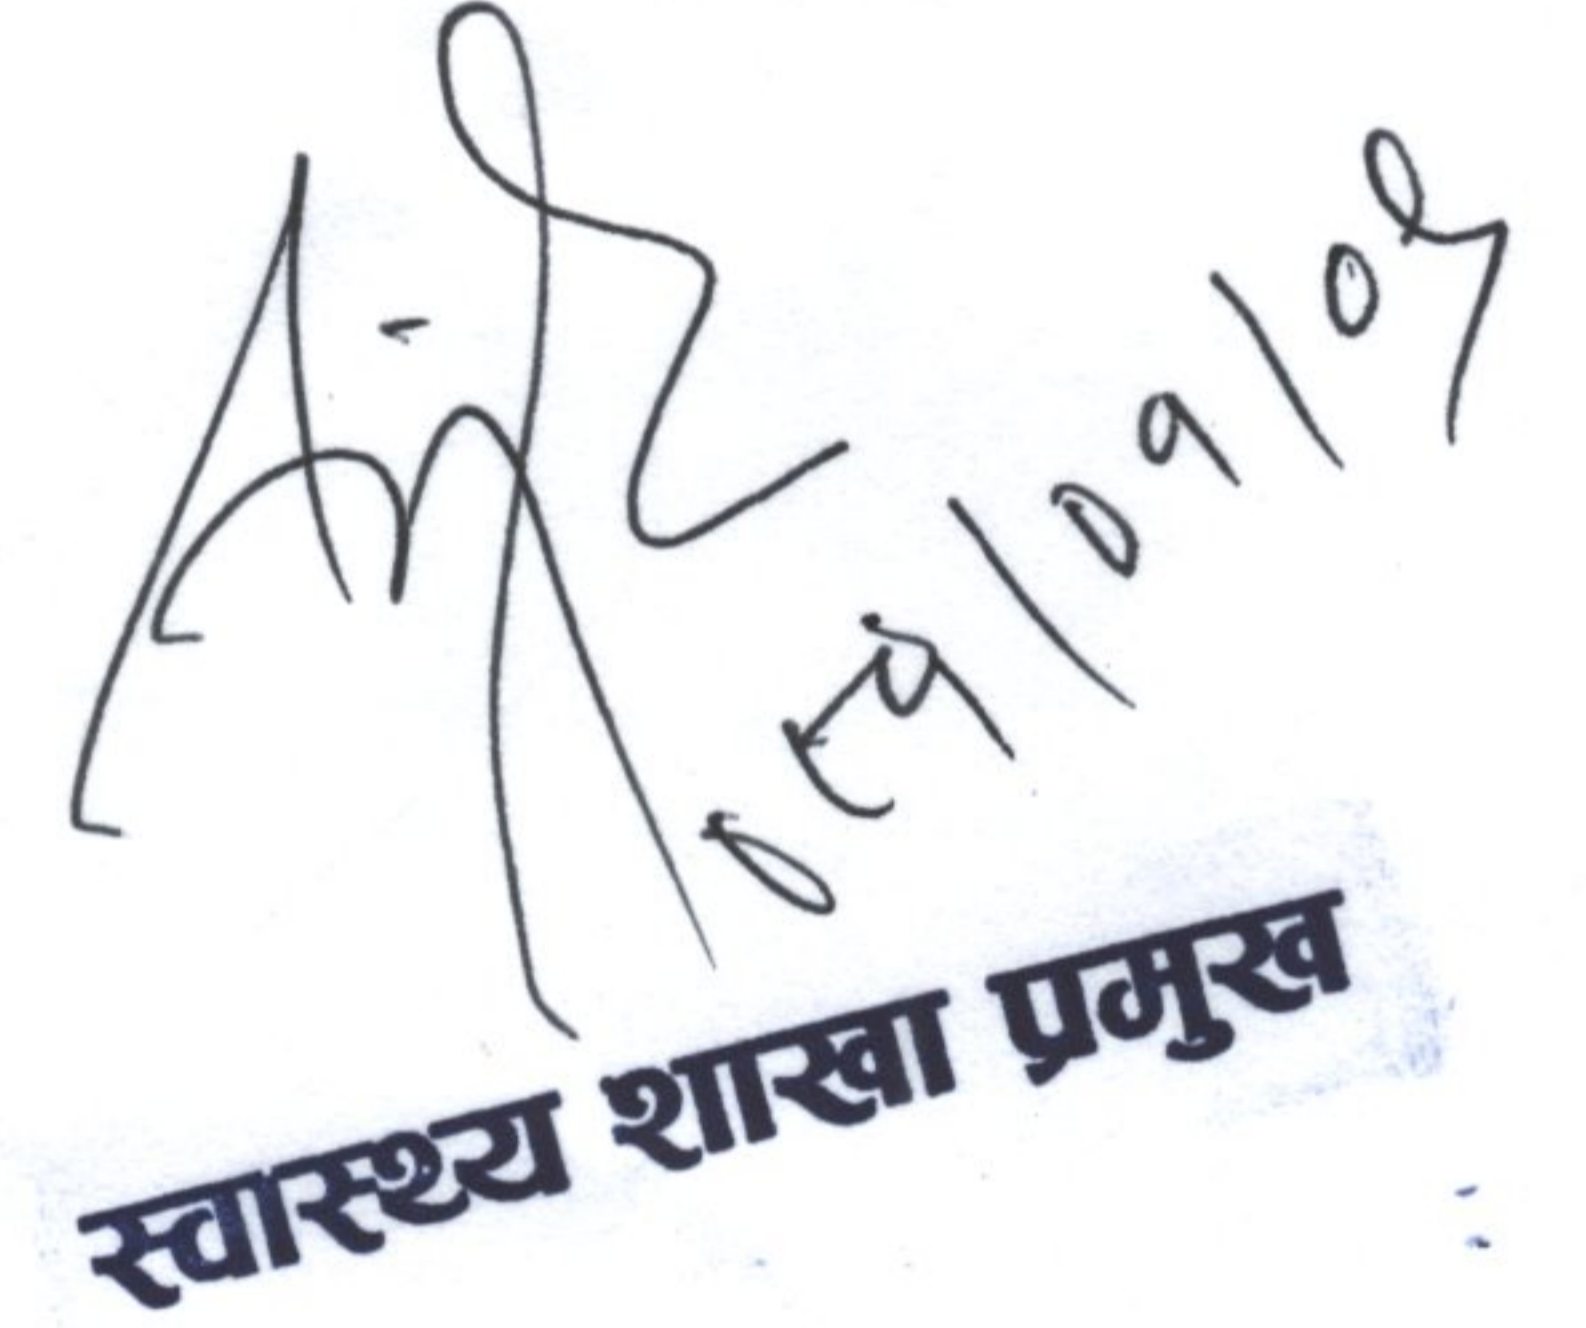 ०८१/०१/०५
स्वास्थ्य शाखा प्रमुख